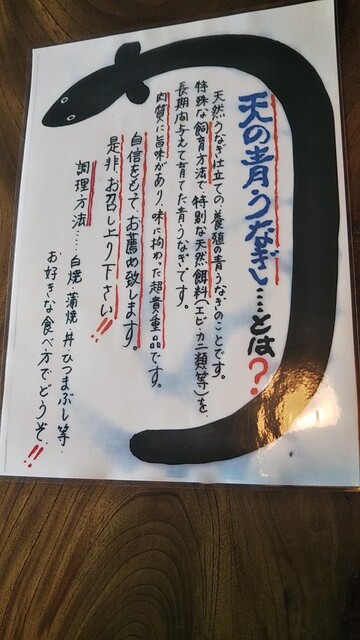 天の青うなぎ…とは？
天然うなぎ仕立ての、養殖の青うなぎのことです。
特殊な飼育方法で、特別な天然餌料(エビ・カニ類等)を、
長期間与えて育てた青うなぎです。
肉質に旨味があり、味に拘わった超貴重品です。
自信をもって、お薦め致します。
是非、お召し上り下さい!!
調理方法…‥白焼 蒲焼 丼 ひつまぶし等.
お好きな食べ方でどうぞ!!